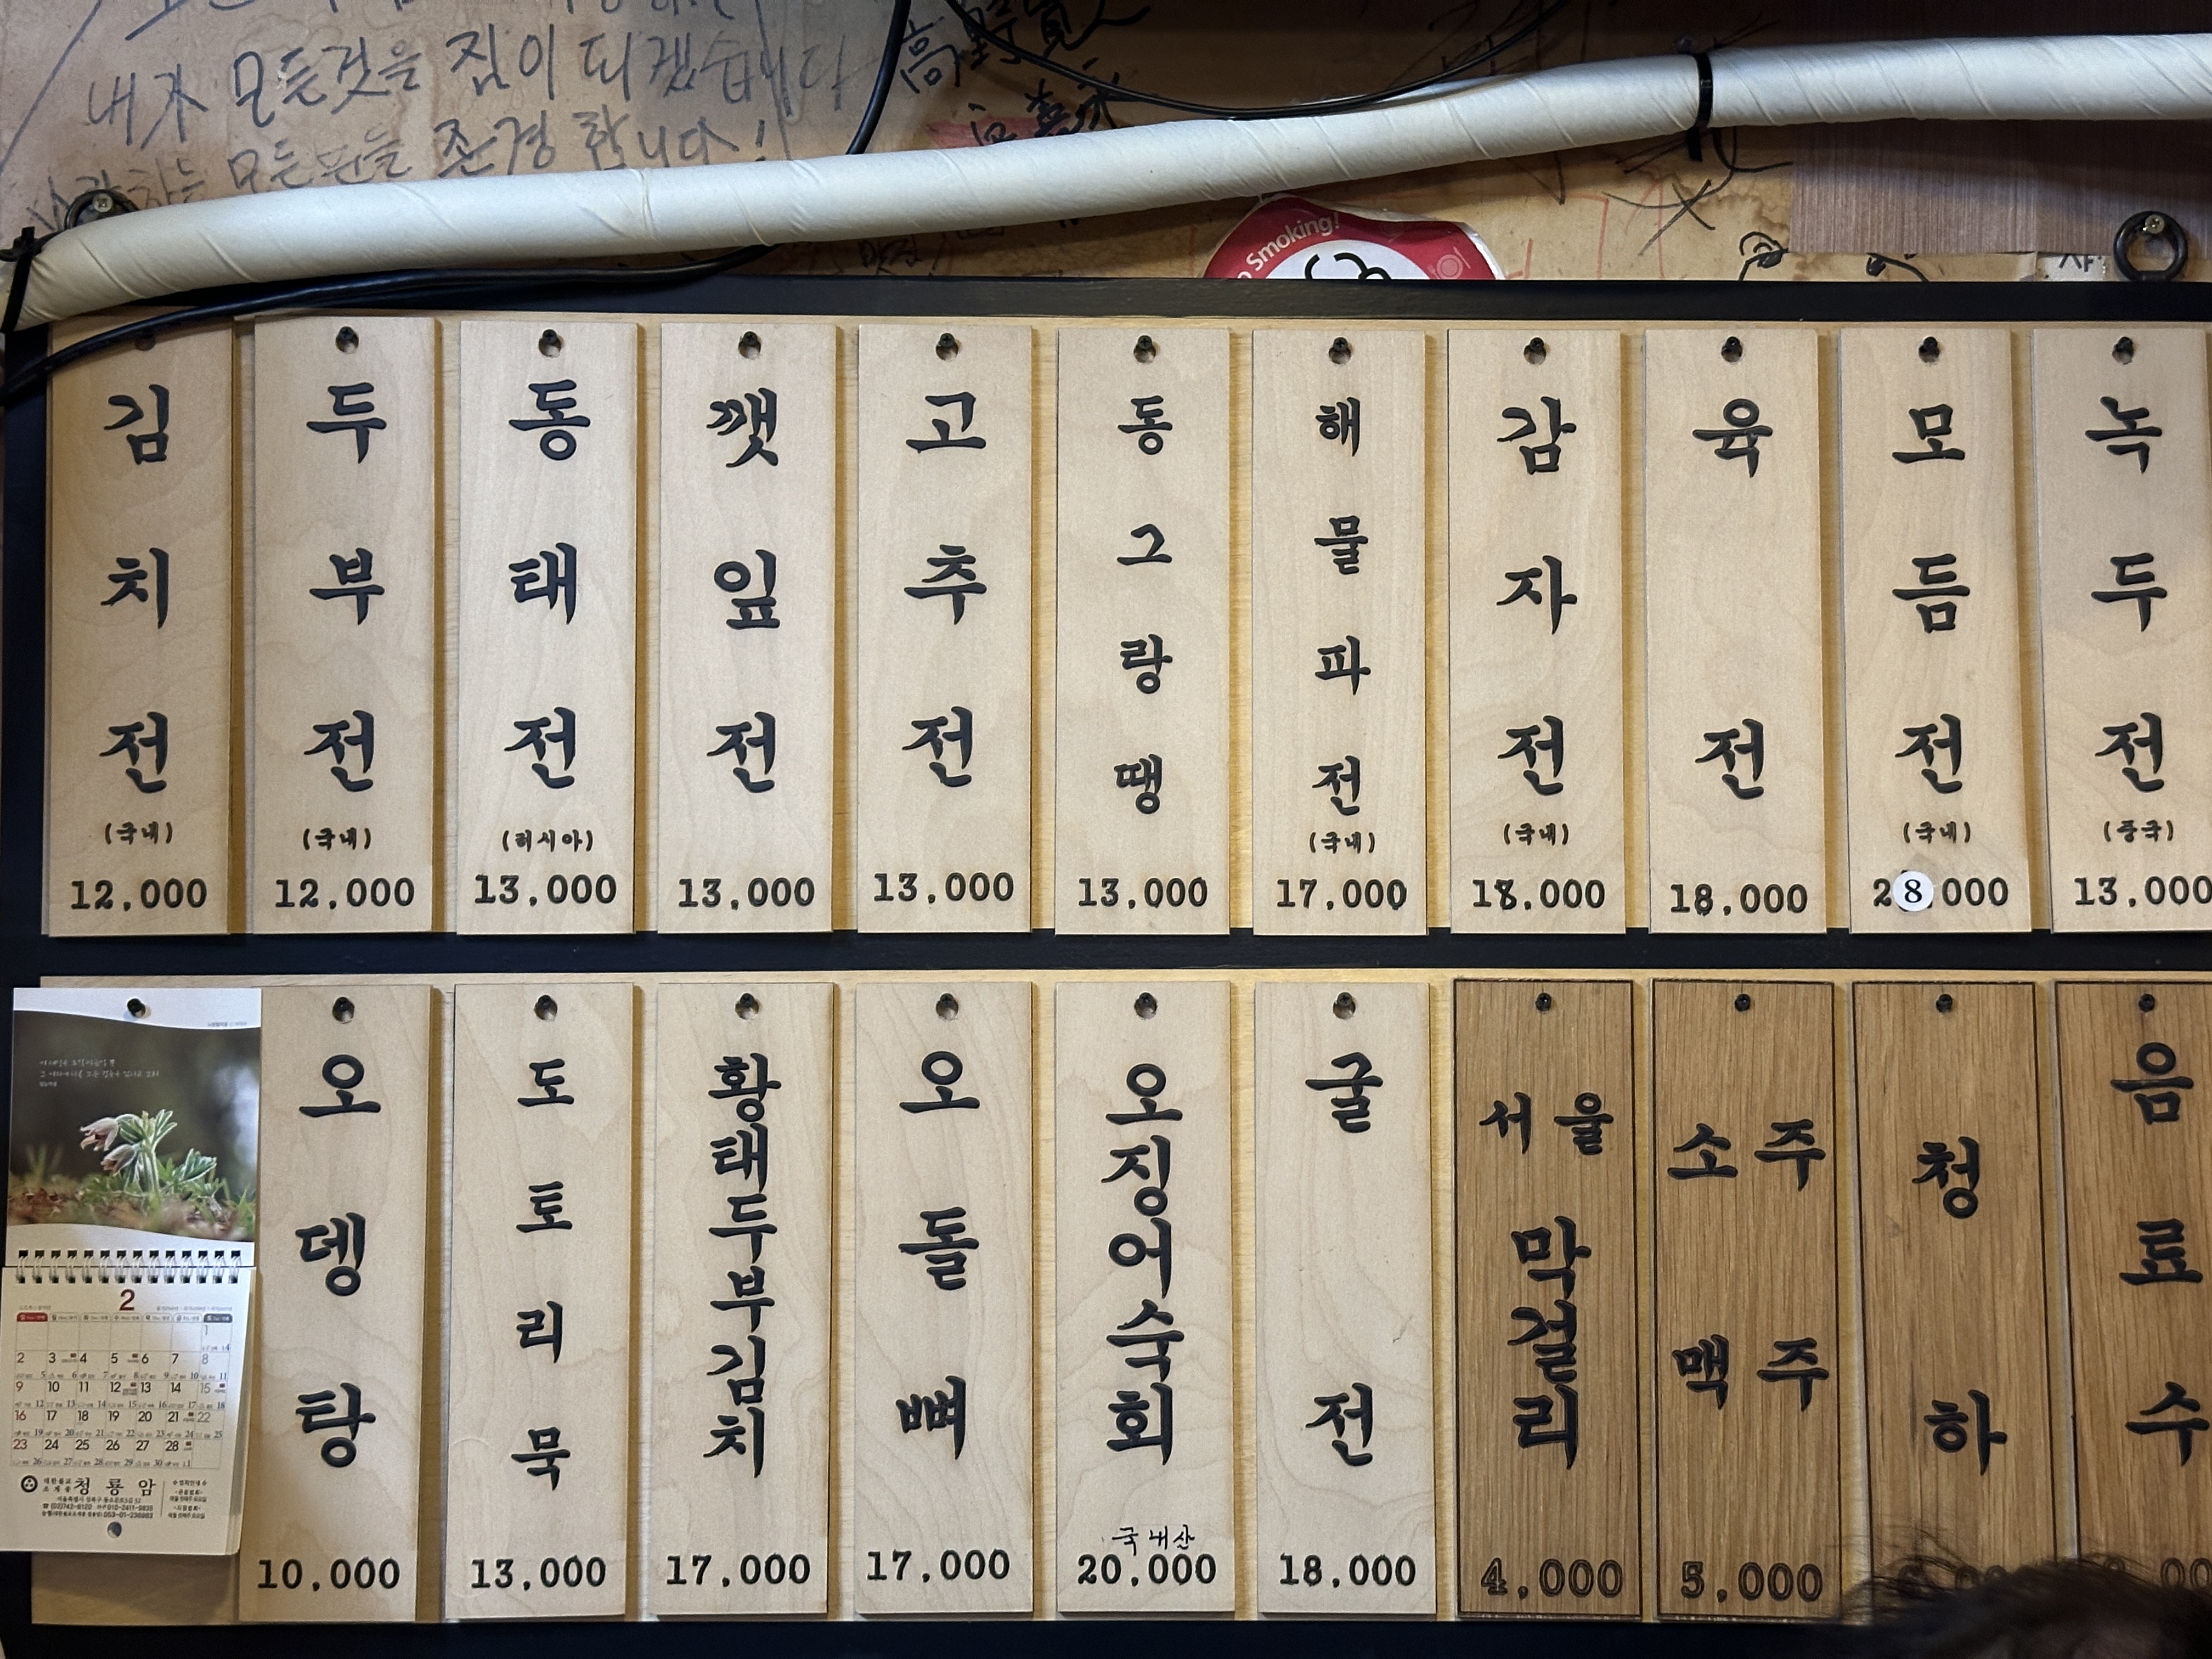 내가 모든것을 짐이 되겠습니다
모든분들 존경 합니다!
Smoking!
김치전
(국내)
12,000
두부전
(국내)
12,000
동태전
(러시아)
13,000
깻잎전
13,000
고추전
13,000
동그랑땡
13,000
해물파전
(국내)
17,000
감자전
(국내)
18,000
육전
18,000
모듬전
(국내)
28,000
녹두전
(중국)
13,000
오뎅탕
10,000
도토리묵
13,000
황태두부김치
17,000
오돌뼈
17,000
오징어숙회
국내산
20,000
굴전
18,000
서울
막걸리
4,000
소주
맥주
5,000
청하
음료수
2
1
2 3 4 5 6 7 8
9 10 11 12 13 14 15
16 17 18 19 20 21 22
23 24 25 26 27 28
청룡암